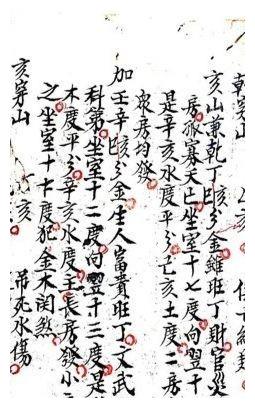 乾穿山
亥山兼乾丁亥分金雖旺丁財官災
房孤寡夭亡坐室十七度向翌十
是辛亥水度平分己亥土度二房
眾房均發
加壬辛亥分金生人富貴旺丁文武
科第坐室十二度向翌十三度是
木度平分辛亥水度主長房發小
之坐室十七度犯金木関煞
亥穿山 亥 吊死水傷